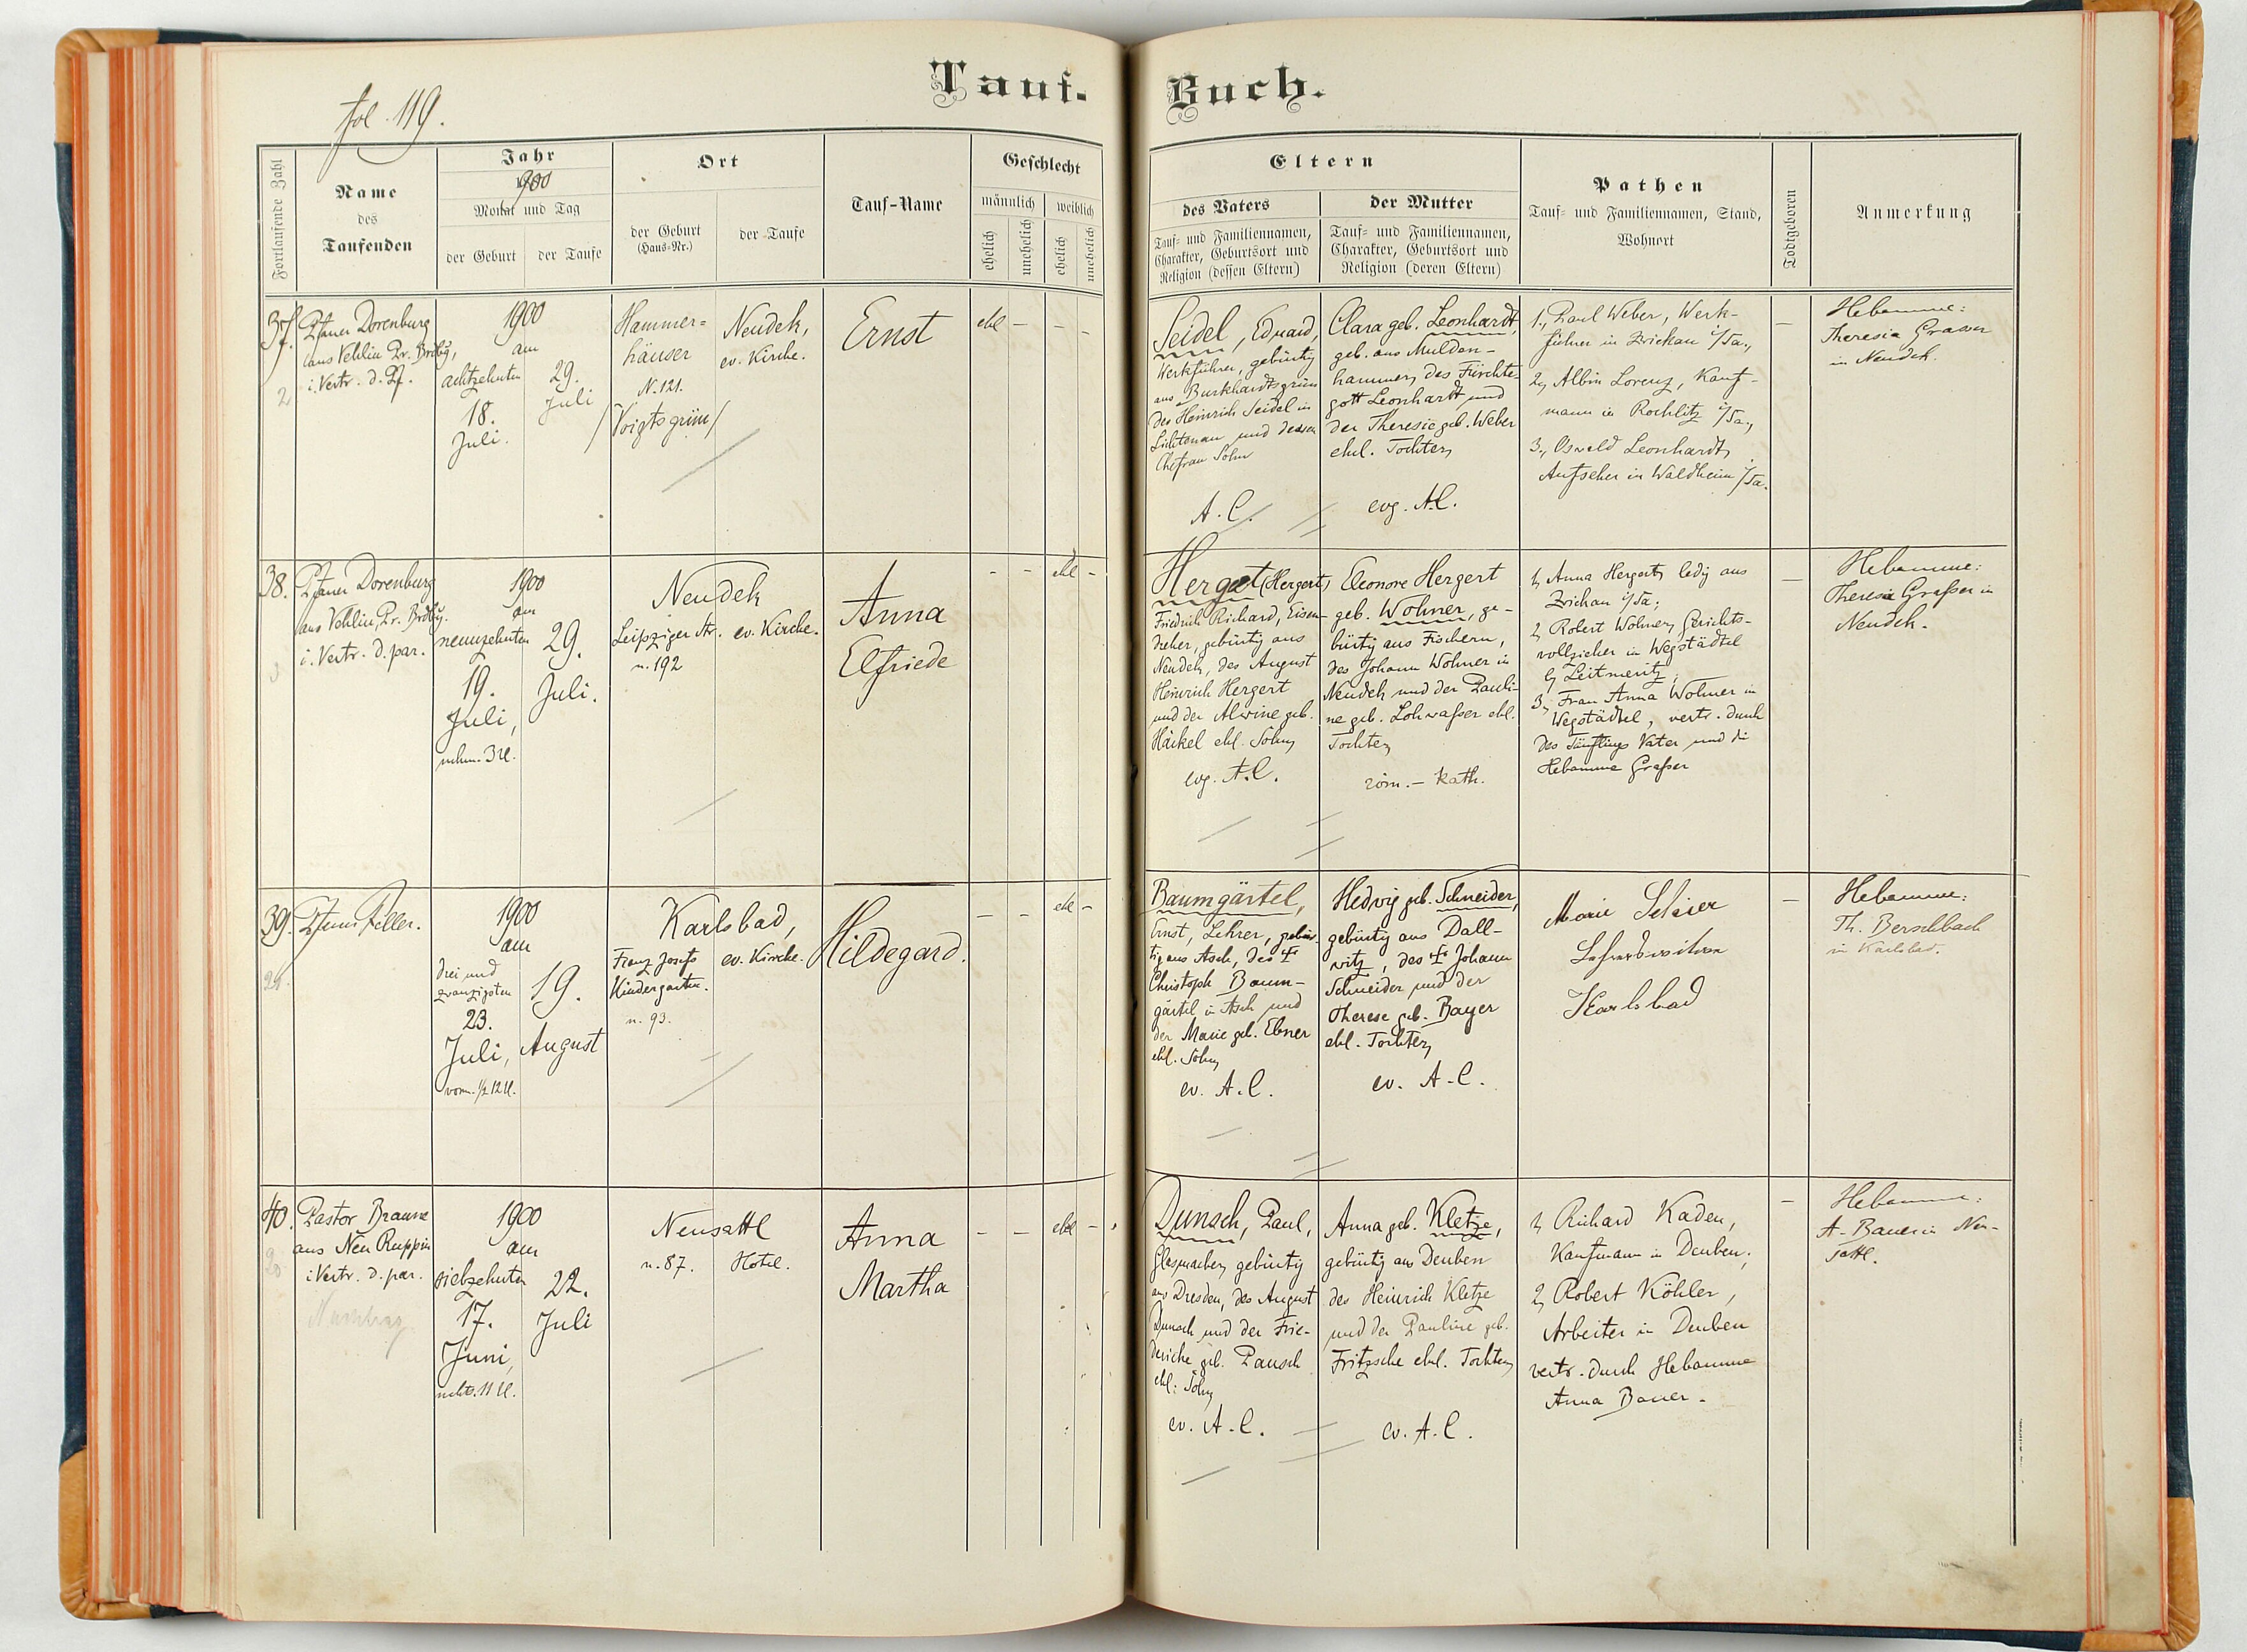 Tauf-
Buch.
fol. 119.
Fortlaufende Zahl
Name
des
Taufenden
Jahr
1900
Monat und Tag
der Geburt
der Taufe
Ort
der Geburt
(Haus-Nr.)
der Taufe
Tauf-Name
Geschlecht
männlich
weiblich
ehelich
unehelich
ehelich
unehelich
Eltern
des Vaters
Tauf- und Familiennamen,
Charakter, Geburtsort und
Religion (dessen Eltern)
der Mutter
Tauf- und Familiennamen,
Charakter, Geburtsort und
Religion (deren Eltern)
Pathen
Tauf- und Familiennamen, Stand,
Wohnort
Todtgeboren
Anmerkung
37.
Pfarrer Dorenburg
aus Vehlin Pr. Brdbg,
i. Vertr. d. Pf.
1900
am
achtzehnten
18.
Juli.
29.
Juli
Hammer=
häuser
N. 121.
/Voigtsgrün/
Neudek,
ev. Kirche.
Ernst
ehl - - -
Seidel, Eduard,
Werkführer, gebürtig
aus Burkhardtsgrün
des Heinrich Seidel in
Lichtenau und dessen
Ehefrau Sohn
A. C.
Clara geb. Leonhardt,
geb. aus Mulden-
hammer, des Fürchte-
gott Leonhardt und
der Theresie geb. Weber
ehel. Tochter,
evg. A.C.
1., Paul Weber, Werk-
führer in Zwickau i/Sa.,
2., Albin Lorenz, Kauf-
mann in Rochlitz i/Sa.,
3., Oswald Leonhardt,
Aufseher in Waldheim i/Sa.
-
Hebamme:
Theresia Grasser
in Neudek.
38.
Pfarrer Dorenburg
aus Vehlin, Pr. Brdbg.
i. Vertr. d. par.
1900
am
neunzehnten
19.
Juli,
nchm. 3 U.
29.
Juli.
Neudek
Leipziger Str.
n. 192
ev. Kirche.
Anna
Elfriede
- - ehl -
Herget (Hergert)
Friedrich Richard, Eisen-
dreher, gebürtig aus
Neudek, des August
Heinrich Hergert
und der Alwine geb.
Häckel ehl. Sohn,
evg. A.C.
Eleonore Hergert
geb. Wohner, ge-
bürtig aus Fischern,
des Johann Wohner in
Neudek und der Pauli-
ne geb. Lohwasser ehl.
Tochter,
röm.-kath.
1, Anna Hergert, ledig aus
Zwickau i/Sa;
2, Robert Wohner, Gerichts-
vollzieher in Wegstädtel
b/ Leitmeritz,
3, Frau Anna Wohner in
Wegstädtel, vertr. durch
des Täuflings Vater und die
Hebamme Grasser
-
Hebamme:
Theresia Grasser in
Neudek.
39.
Pfarrer Feller.
1900
am
drei und
zwanzigsten
23.
Juli,
vorm. 1/2 12 U.
19.
August
Karlsbad,
Franz Josefs
Kindergarten.
n. 93.
ev. Kirche.
Hildegard.
- - ehl -
Baumgärtel,
Ernst, Lehrer, gebür-
tig aus Asch, des †
Christoph Baum-
gärtel in Asch und
der Marie geb. Ebner
ehl. Sohn,
ev. A.C.
Hedwig geb. Schneider,
gebürtig aus Dall-
witz, des † Johann
Schneider und der
Therese geb. Bayer
ehl. Tochter,
ev. A.C.
Marie
Karlsbad
-
Hebamme:
Th. Berschbach
in Karlsbad.
40.
Pastor Braune
aus Neu Ruppin
i. Vertr. d. par.
1900
am
siebzehnten
17.
Juni,
nchts. 11 U.
22.
Juli
Neusattl
n. 87.
Hotel.
Anna
Martha
- - ehl -
Dunsch, Paul,
Glasmacher, gebürtig
aus Dresden, des August
Dunsch und der Frie-
dericke geb. Pausch
ehl. Sohn,
ev. A.C.
Anna geb. Kletze,
gebürtig aus Deuben
des Heinrich Kletze
und der Pauline geb.
Fritzsche ehl. Tochter,
ev. A.C.
1, Richard Kaden,
Kaufmann in Deuben,
2, Robert Köhler,
Arbeiter in Deuben
vertr. durch Hebamme
Anna Bauer.
-
Hebamme:
A. Bauer in Neu-
sattl.